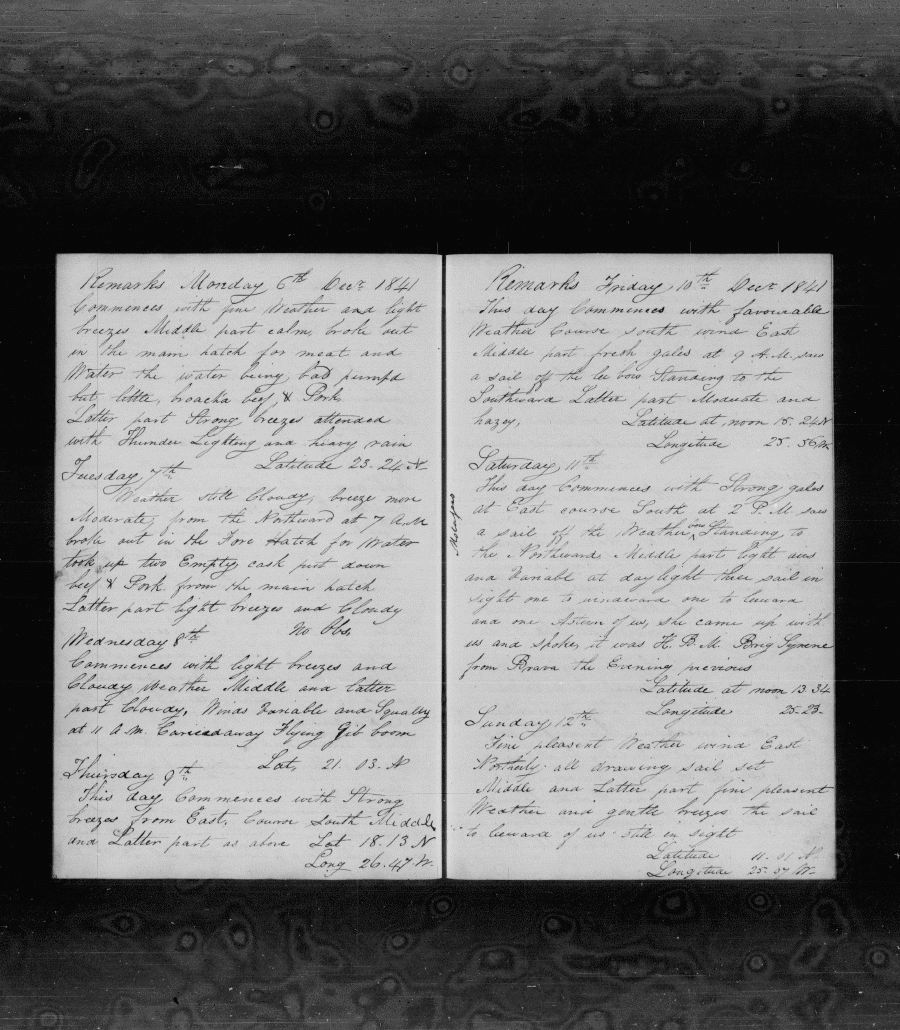 Remarks Monday 6th Decr 1841
Commences with fine Weather and light
breezes Middle part calm, broke out
in the main hatch for meat and
Water the water being bad pumpd
but little, broacha beef & Pork
Latter part Strong breezes attended
with Thunder Lighting and heavy rain
Latitude 23-24 N
Tuesday 7th
Weather still Cloudy, breeze more
Moderate, from the Northward at 7 A.M
broke out in the Fore Hatch for Water
took up two Empty cask put down
beef & Pork from the main hatch
Latter part light breezes and Cloudy
No Obs,
Wednesday 8th
Commences with light breezes and
Cloudy Weather Middle and latter
part Cloudy, Winds Variable and Squally
at 11 A.M. Carried away Flying Gib boom
Lat, 21.03. N
Thursday 9th
This day Commences with Strong
breezes from East, Course South Middle
and Latter part as above Lat 18.13 N
Long 26.47 W.
Remarks Friday 10th Decr 1841
This day Commences with favourable
Weather Course south wind East
Middle part fresh gales at 9 A.M. saw
a sail off the lee bow Standing to the
Southward Latter part Moderate and
hazey, Latitude at noon 15.24 N
Longitude 25-56 W.
Saturday, 11th
This day Commences with Strong gales
at East course South at 2 P.M saw
a sail off the Weather bow Standing to
the Northward Middle part light airs
and Variabl at daylight three sail in
sight one to windward one to leward
and one Astern of us, she came up with
us and spoke, it was H.B.M. Brig Syrene
from Brava the Evening previous
Latitude at noon 13.34
Longitude 25-23-
Sunday, 12th
Fine pleasent Weather wind East
Northerly all drawing sail set
Middle and Latter part fine pleasent
Weather and gentle breezes the sail
to leward of us still in sight
Latitude 11.01 N.
Longitude 25-37 W-